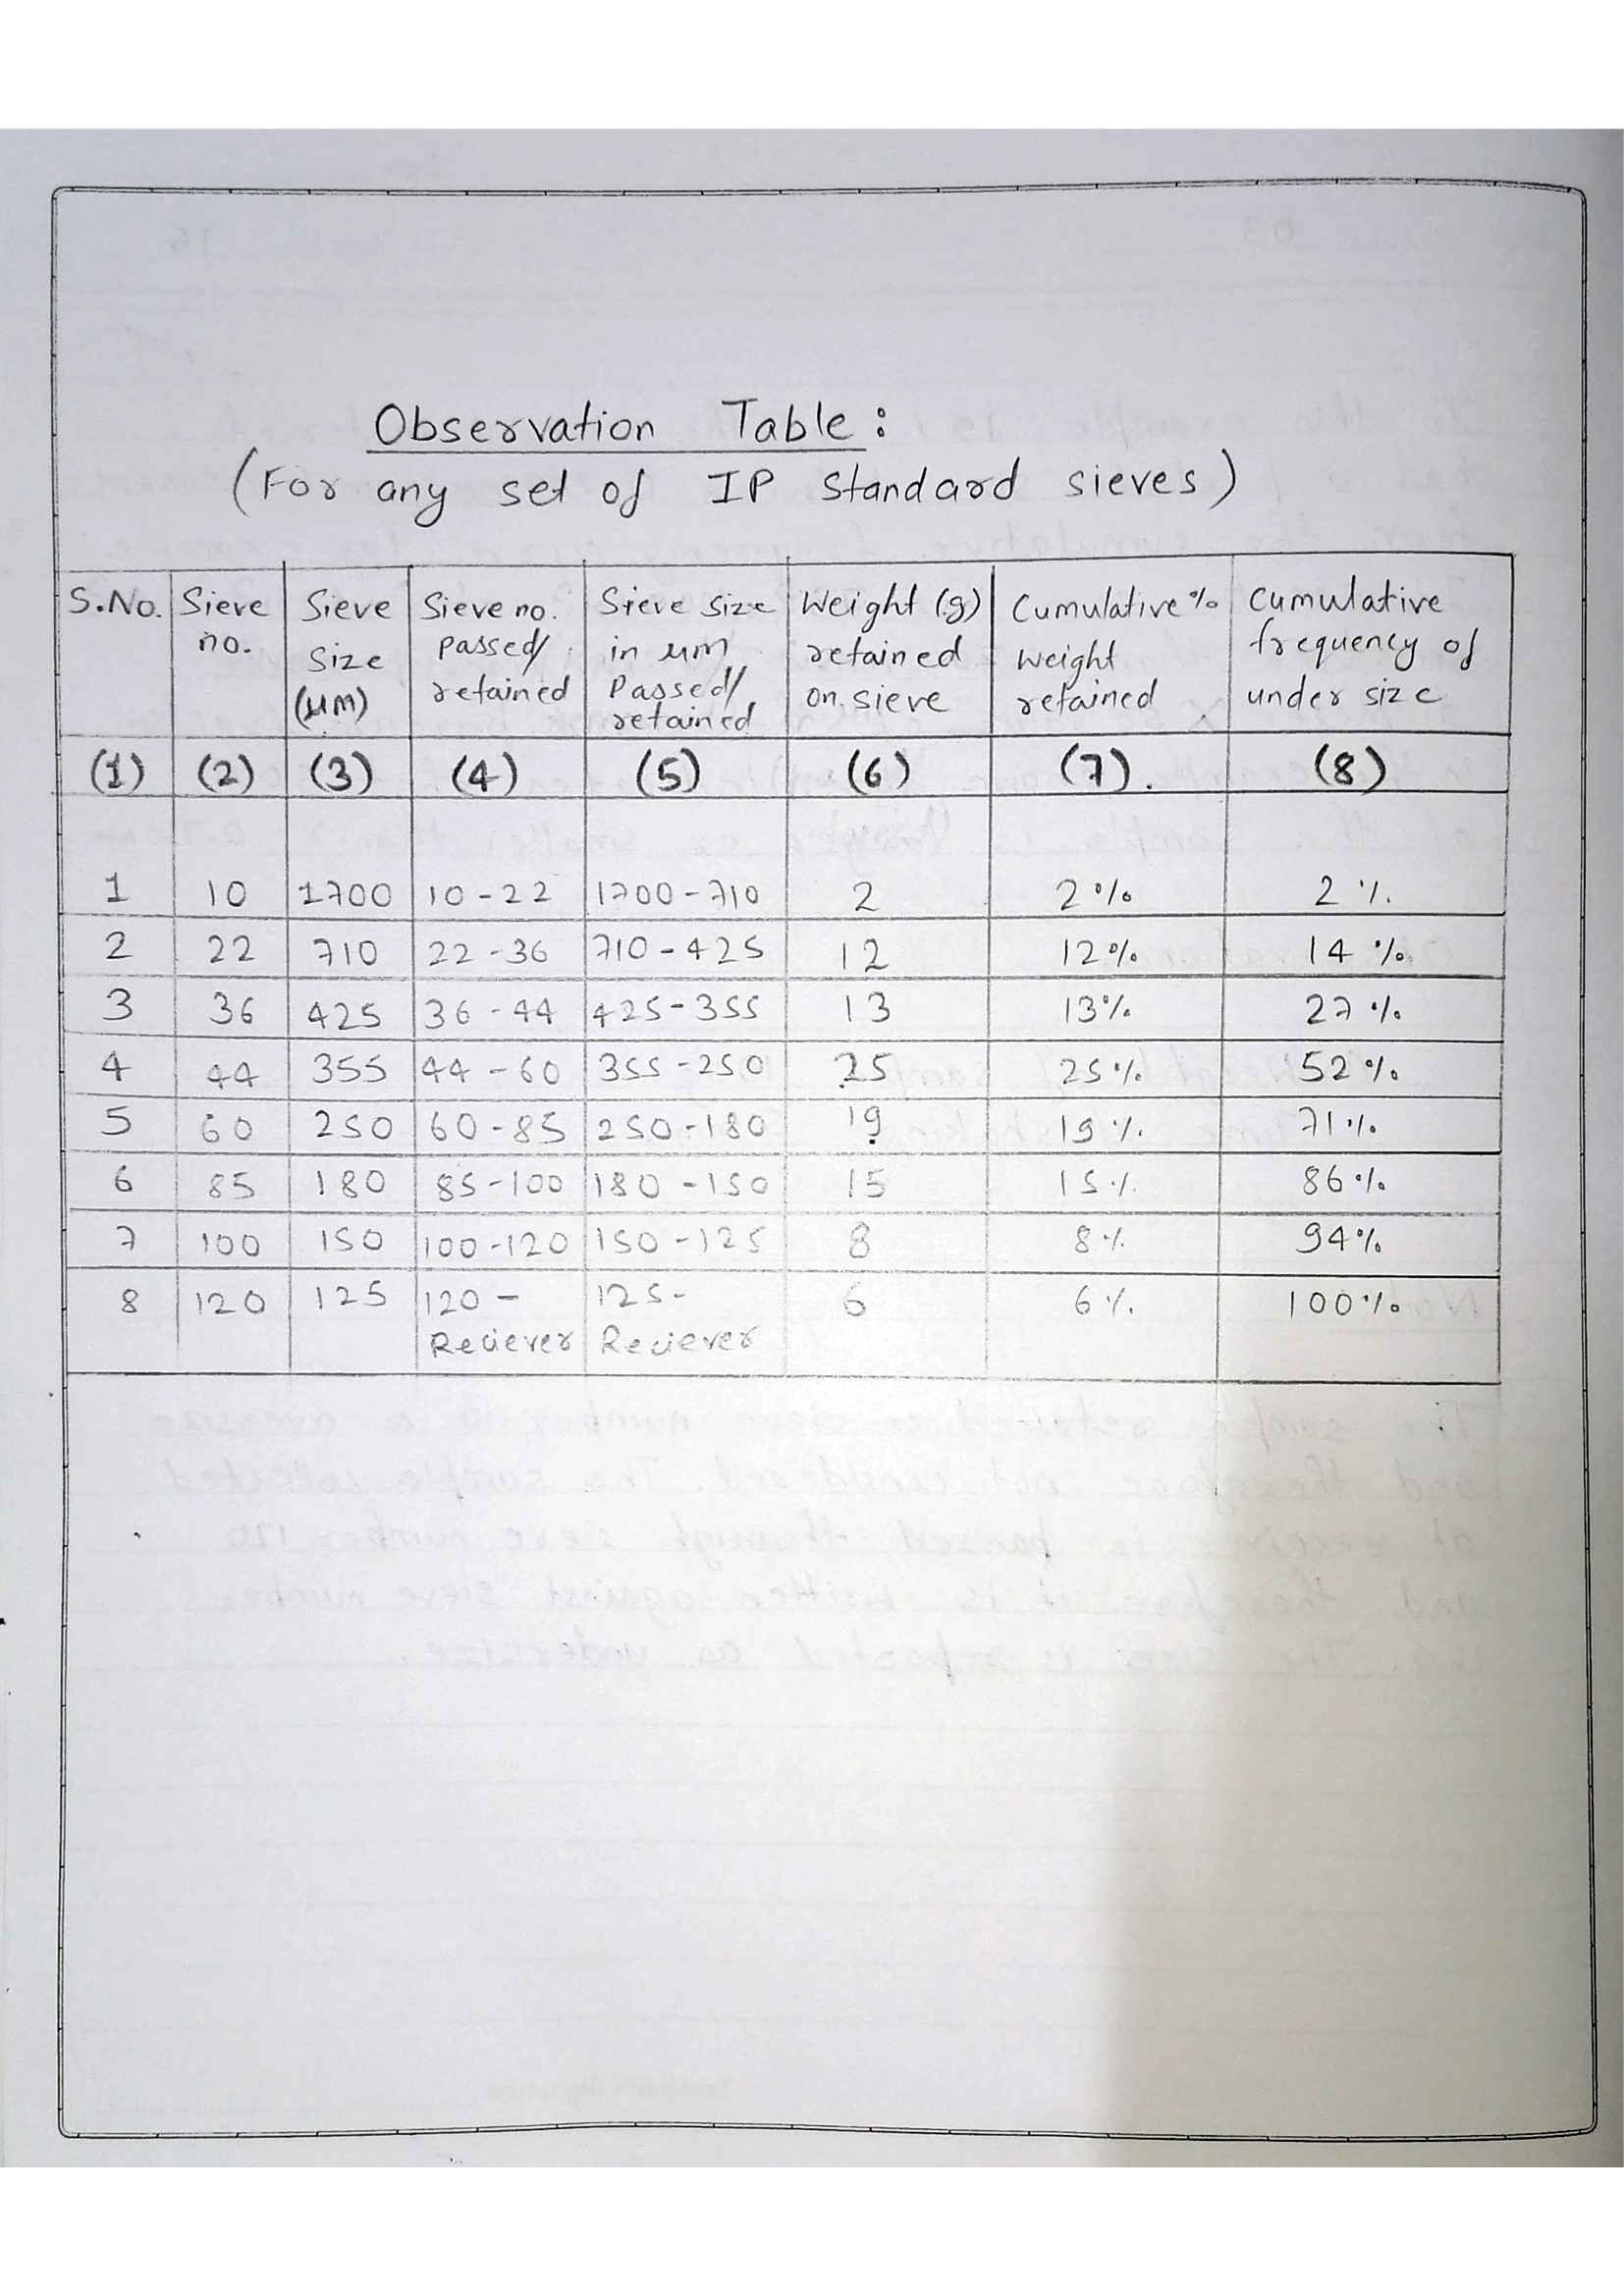 Observation Table :
(For any set of IP Standard sieves)
S.No. | Sieve no. | Sieve Size (μm) | Sieve no. passed/ retained | Sieve size in μm Passed/ retained | Weight (g) retained on sieve | Cumulative % Weight retained | Cumulative frequency of under size
(1) | (2) | (3) | (4) | (5) | (6) | (7). | (8)
1 | 10 | 1700 | 10-22 | 1700-710 | 2 | 2% | 2%
2 | 22 | 710 | 22-36 | 710-425 | 12 | 12% | 14%
3 | 36 | 425 | 36-44 | 425-355 | 13 | 13% | 27%
4 | 44 | 355 | 44-60 | 355-250 | 25 | 25% | 52%
5 | 60 | 250 | 60-85 | 250-180 | 19 | 19% | 71%
6 | 85 | 180 | 85-100 | 180-150 | 15 | 15% | 86%
7 | 100 | 150 | 100-120 | 150-125 | 8 | 8% | 94%
8 | 120 | 125 | 120- Reciever | 125- Reciever | 6 | 6% | 100%